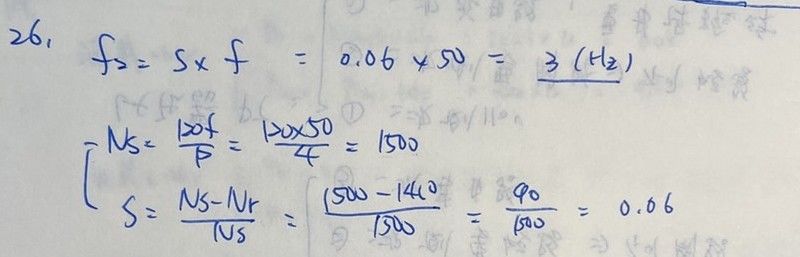 26. f₂ = S × f = 0.06 × 50 = 3 (Hz)
Ns = 120f/P = 120×50/4 = 1500
S = Ns-Nr/Ns = 1500-1410/1500 = 90/1500 = 0.06